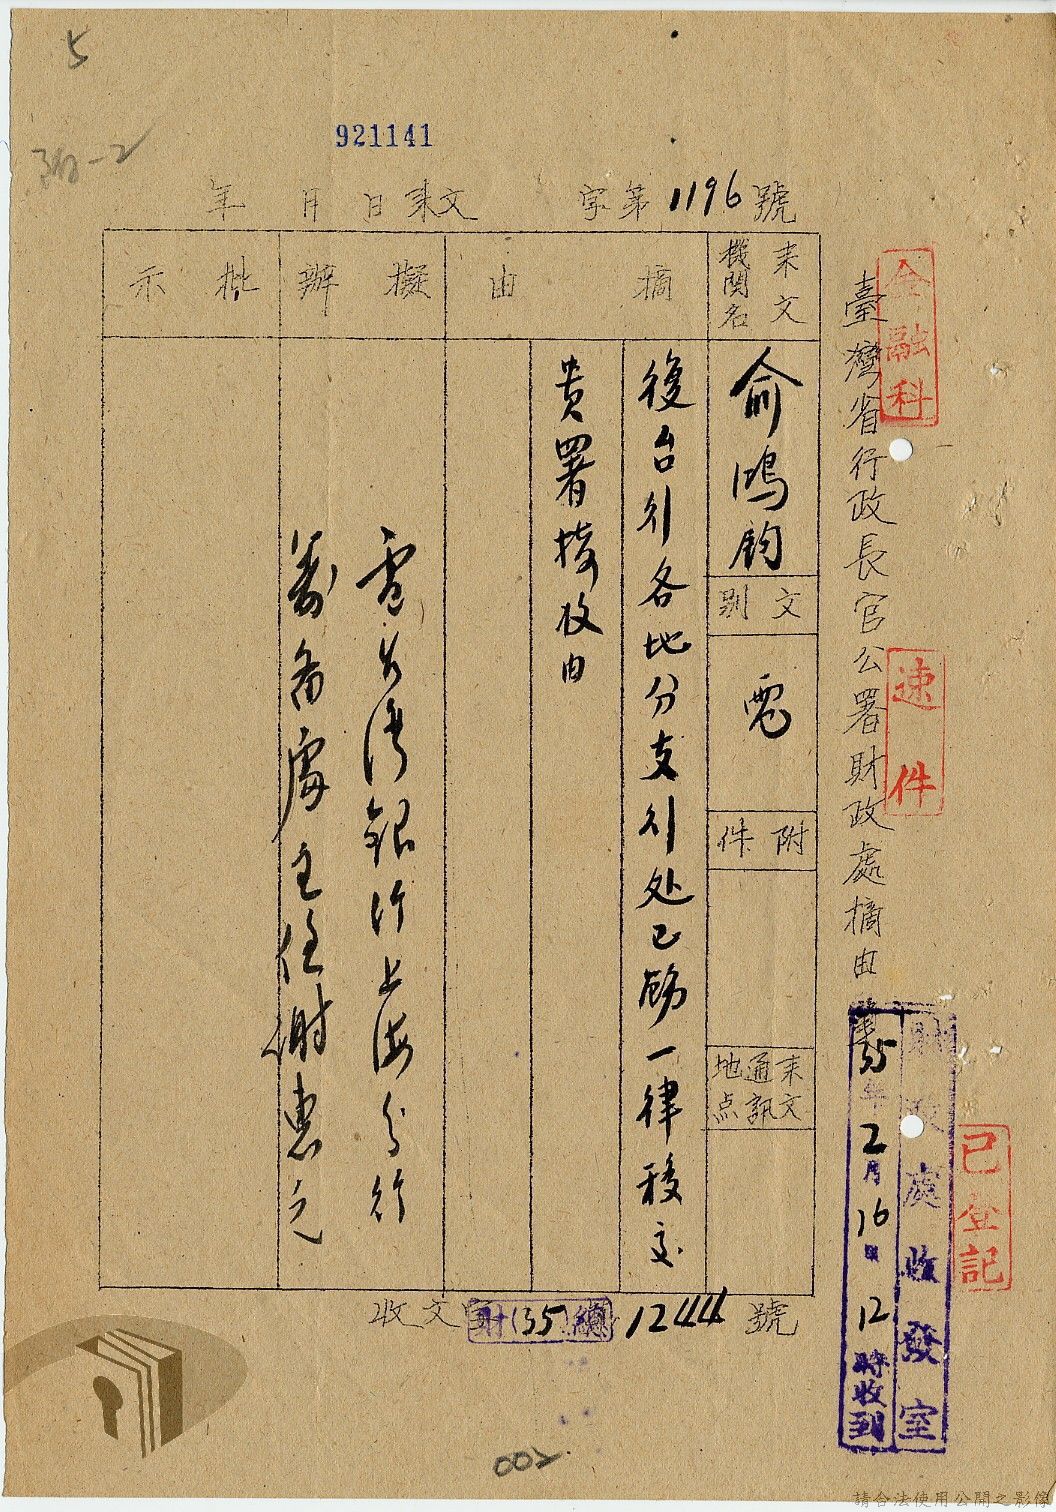 5
921141
年 月 日 來文 字第1196號
金融科
速件
已登記
臺灣省行政長官公署財政處摘由
財政處收發室
35年2月16日12時收到
來文機關名
俞鴻鈞
文別
電
附件
來文通訊地点
摘由
復台行各地分支行处已飭一律移交
貴署接收由
擬辦
電台灣銀行上海分行
籌備處主任謝惠元
批示
收文 財(35)總 1244號
002
請合法使用公開之影像